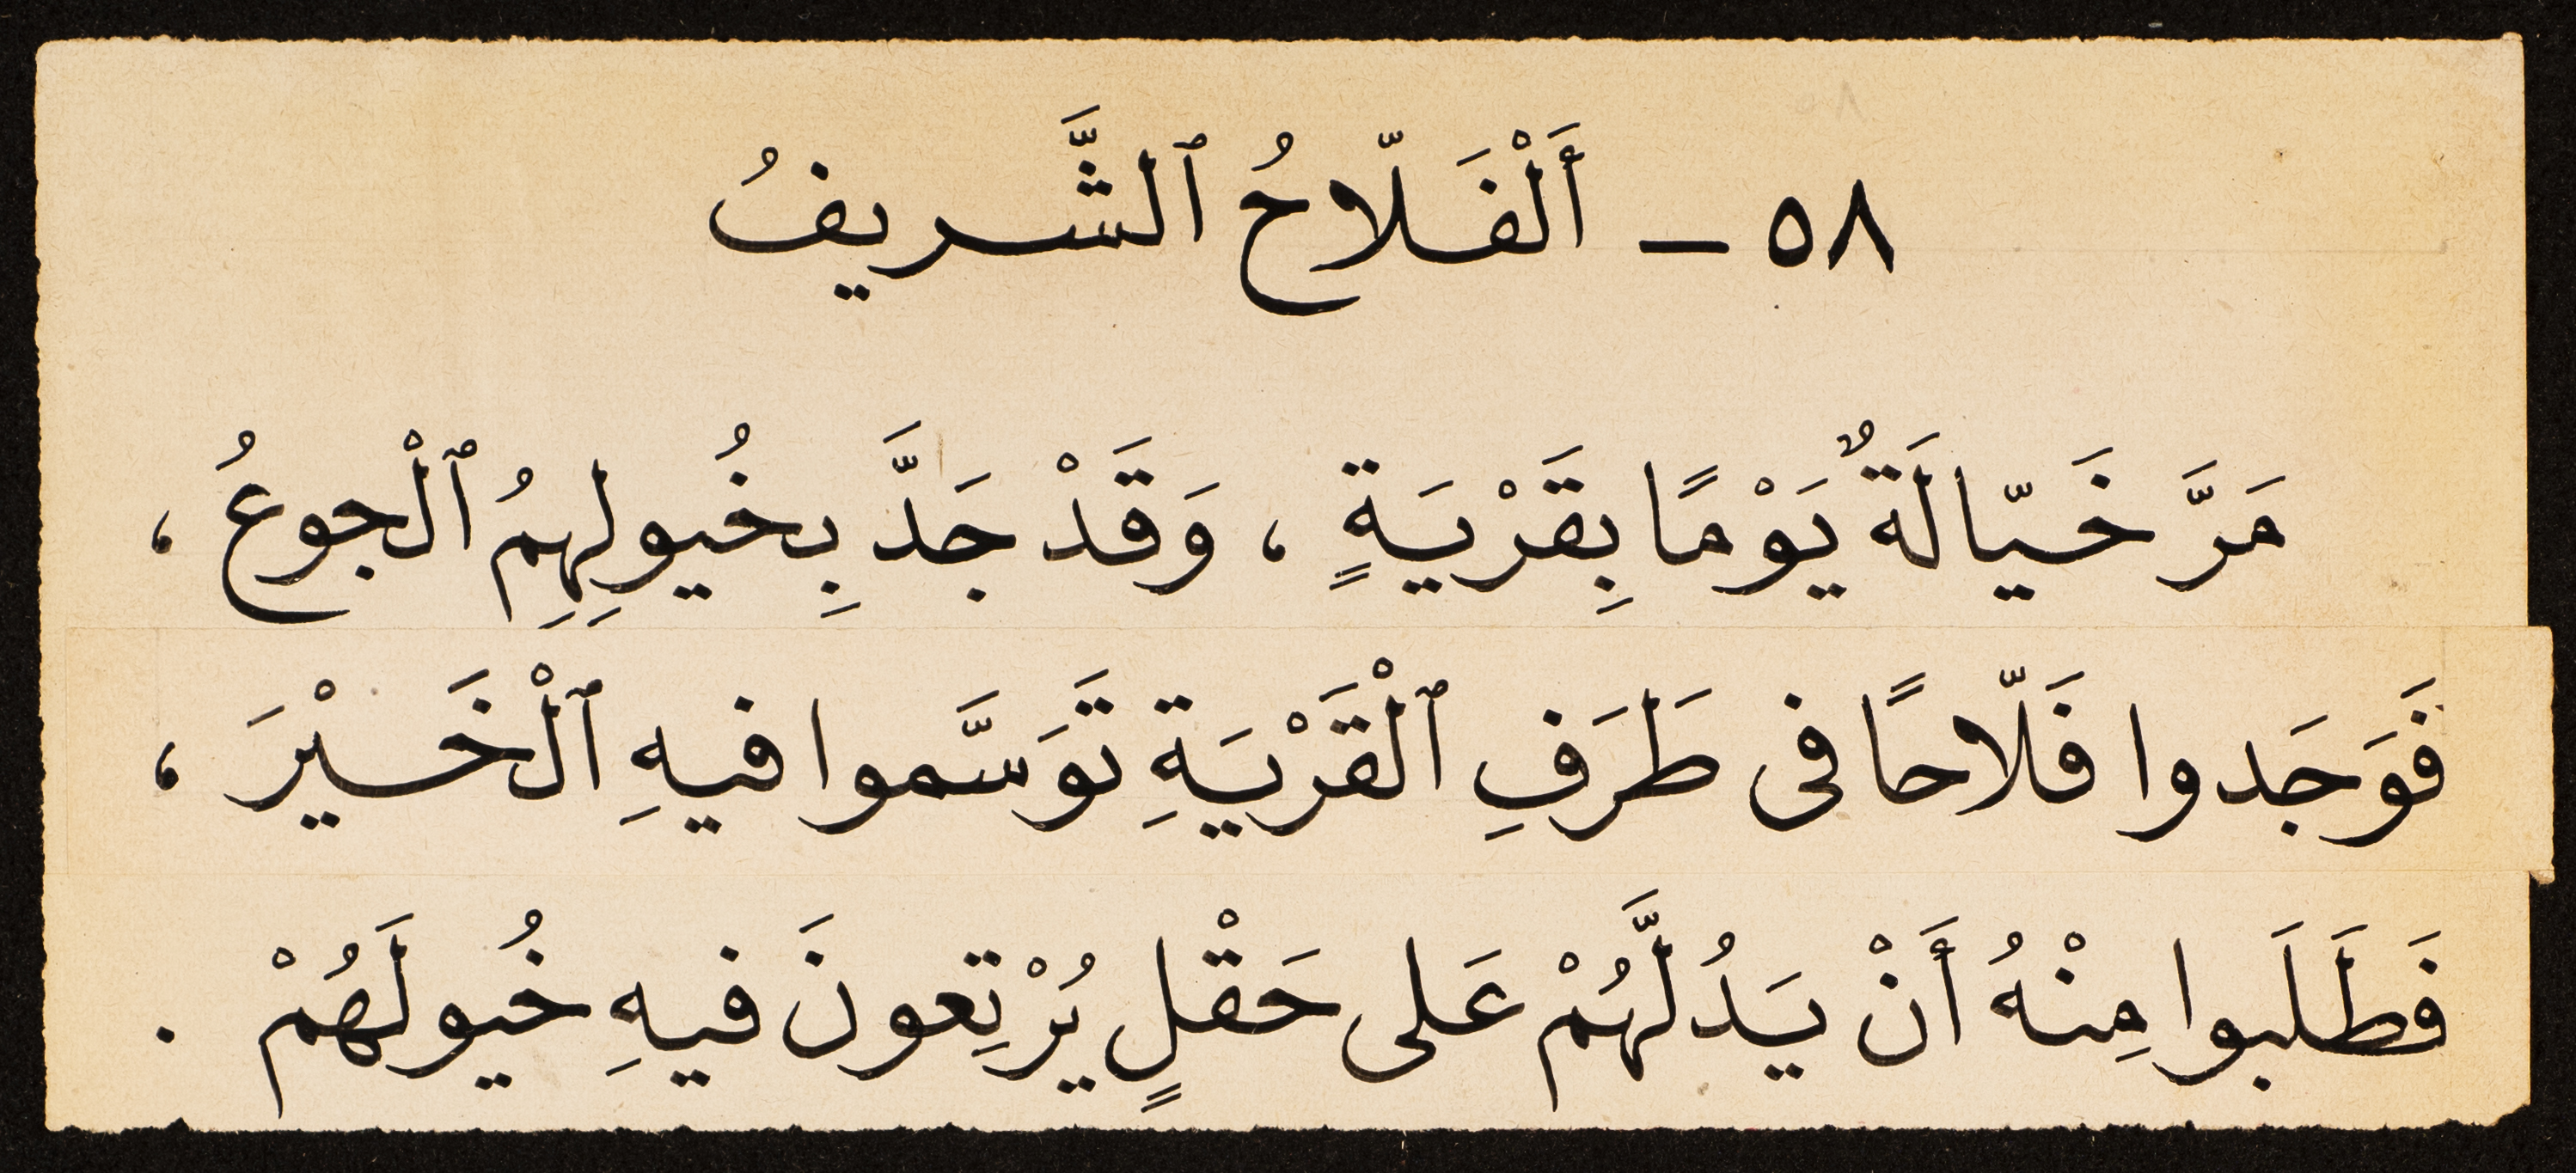 ٥٨ – أَلْفَلّاحُ ٱلشَّريفُ
مَرَّ خَيّالَةٌ يَوْمًا بِقَرْيَةٍ ، وَقَدْ جَدَّ بِخُيولِهِمُ ٱلْجوعُ ،
فَوَجَدوا فَلّاحًا فى طَرَفِ ٱلْقَرْيَةِ تَوَسَّموا فيهِ ٱلْخَيْرَ ،
فَطَلَبوا مِنْهُ أَنْ يَدُلَّهُمْ عَلى حَقْلٍ يُرْتِعونَ فيهِ خُيولَهُمْ .